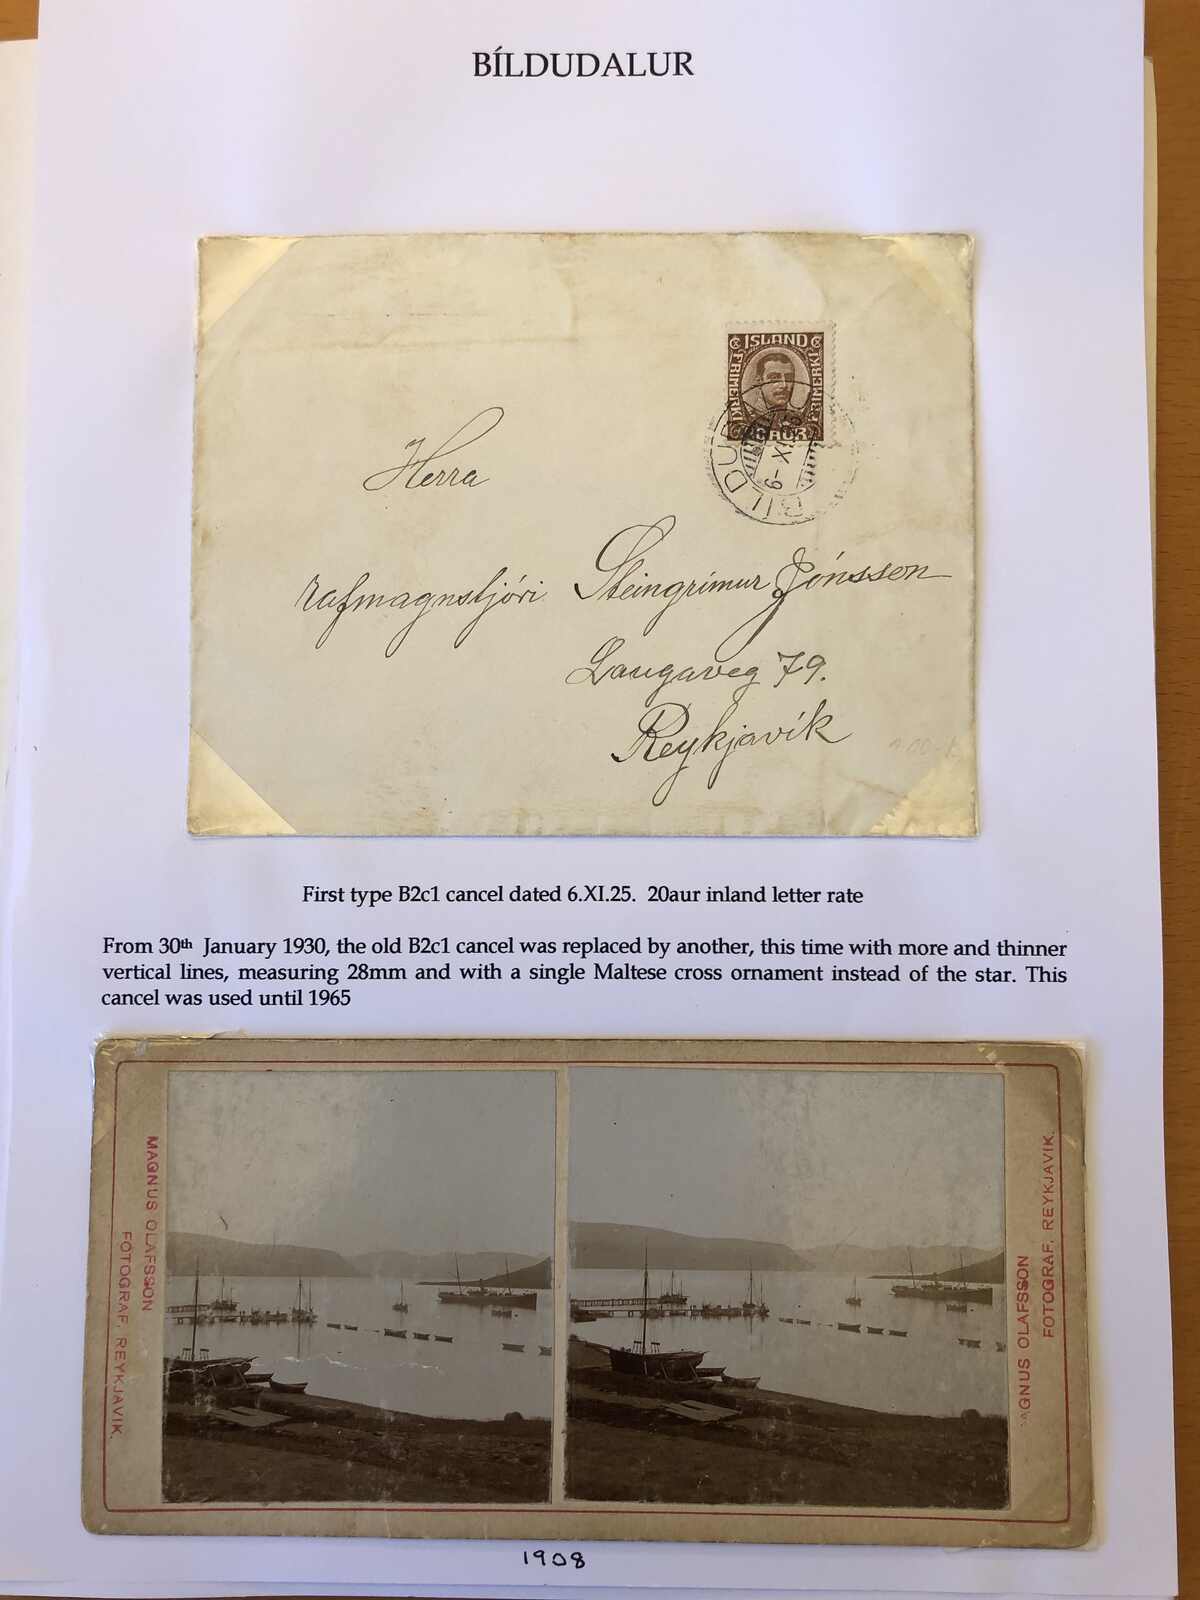 BÍLDUDALUR
ISLAND
FRIMERKI
FRIMERKI
20 AUR
BÍLDU
6-XI 25
Herra
rafmagnstjóri Steingrímur Jónsson
Laugaveg 79.
Reykjavík
First type B2c1 cancel dated 6.XI.25. 20aur inland letter rate
From 30th January 1930, the old B2c1 cancel was replaced by another, this time with more and thinner
vertical lines, measuring 28mm and with a single Maltese cross ornament instead of the star. This
cancel was used until 1965
MAGNUS OLAFSSON
FOTOGRAF, REYKJAVIK.
AGNUS OLAFSSON
FOTOGRAF, REYKJAVIK.
1908